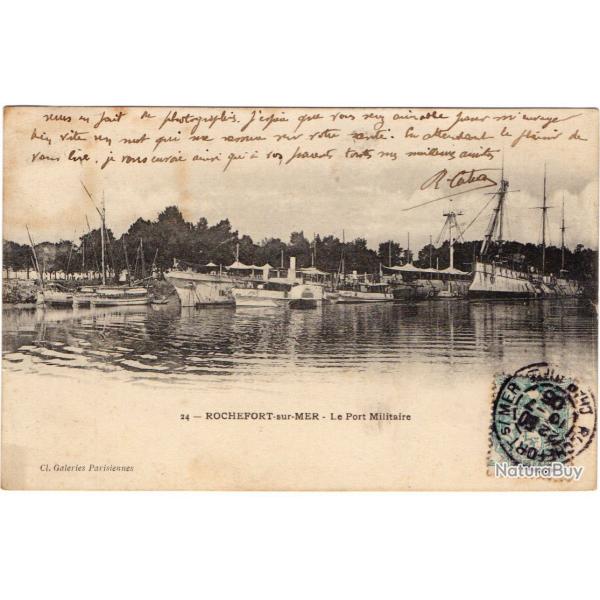 vues en fait de photographie. J'espère que vous serez aimable pour m'envoyer
bien vite un mot qui me rassure sur votre santé. En attendant le plaisir de
vous lire, je vous envoie ainsi qu'à vos parents toutes mes meilleures amitiés
24 — ROCHEFORT-sur-MER - Le Port Militaire
Cl. Galeries Parisiennes
ROCHEFORT S. MER
NaturaBuy